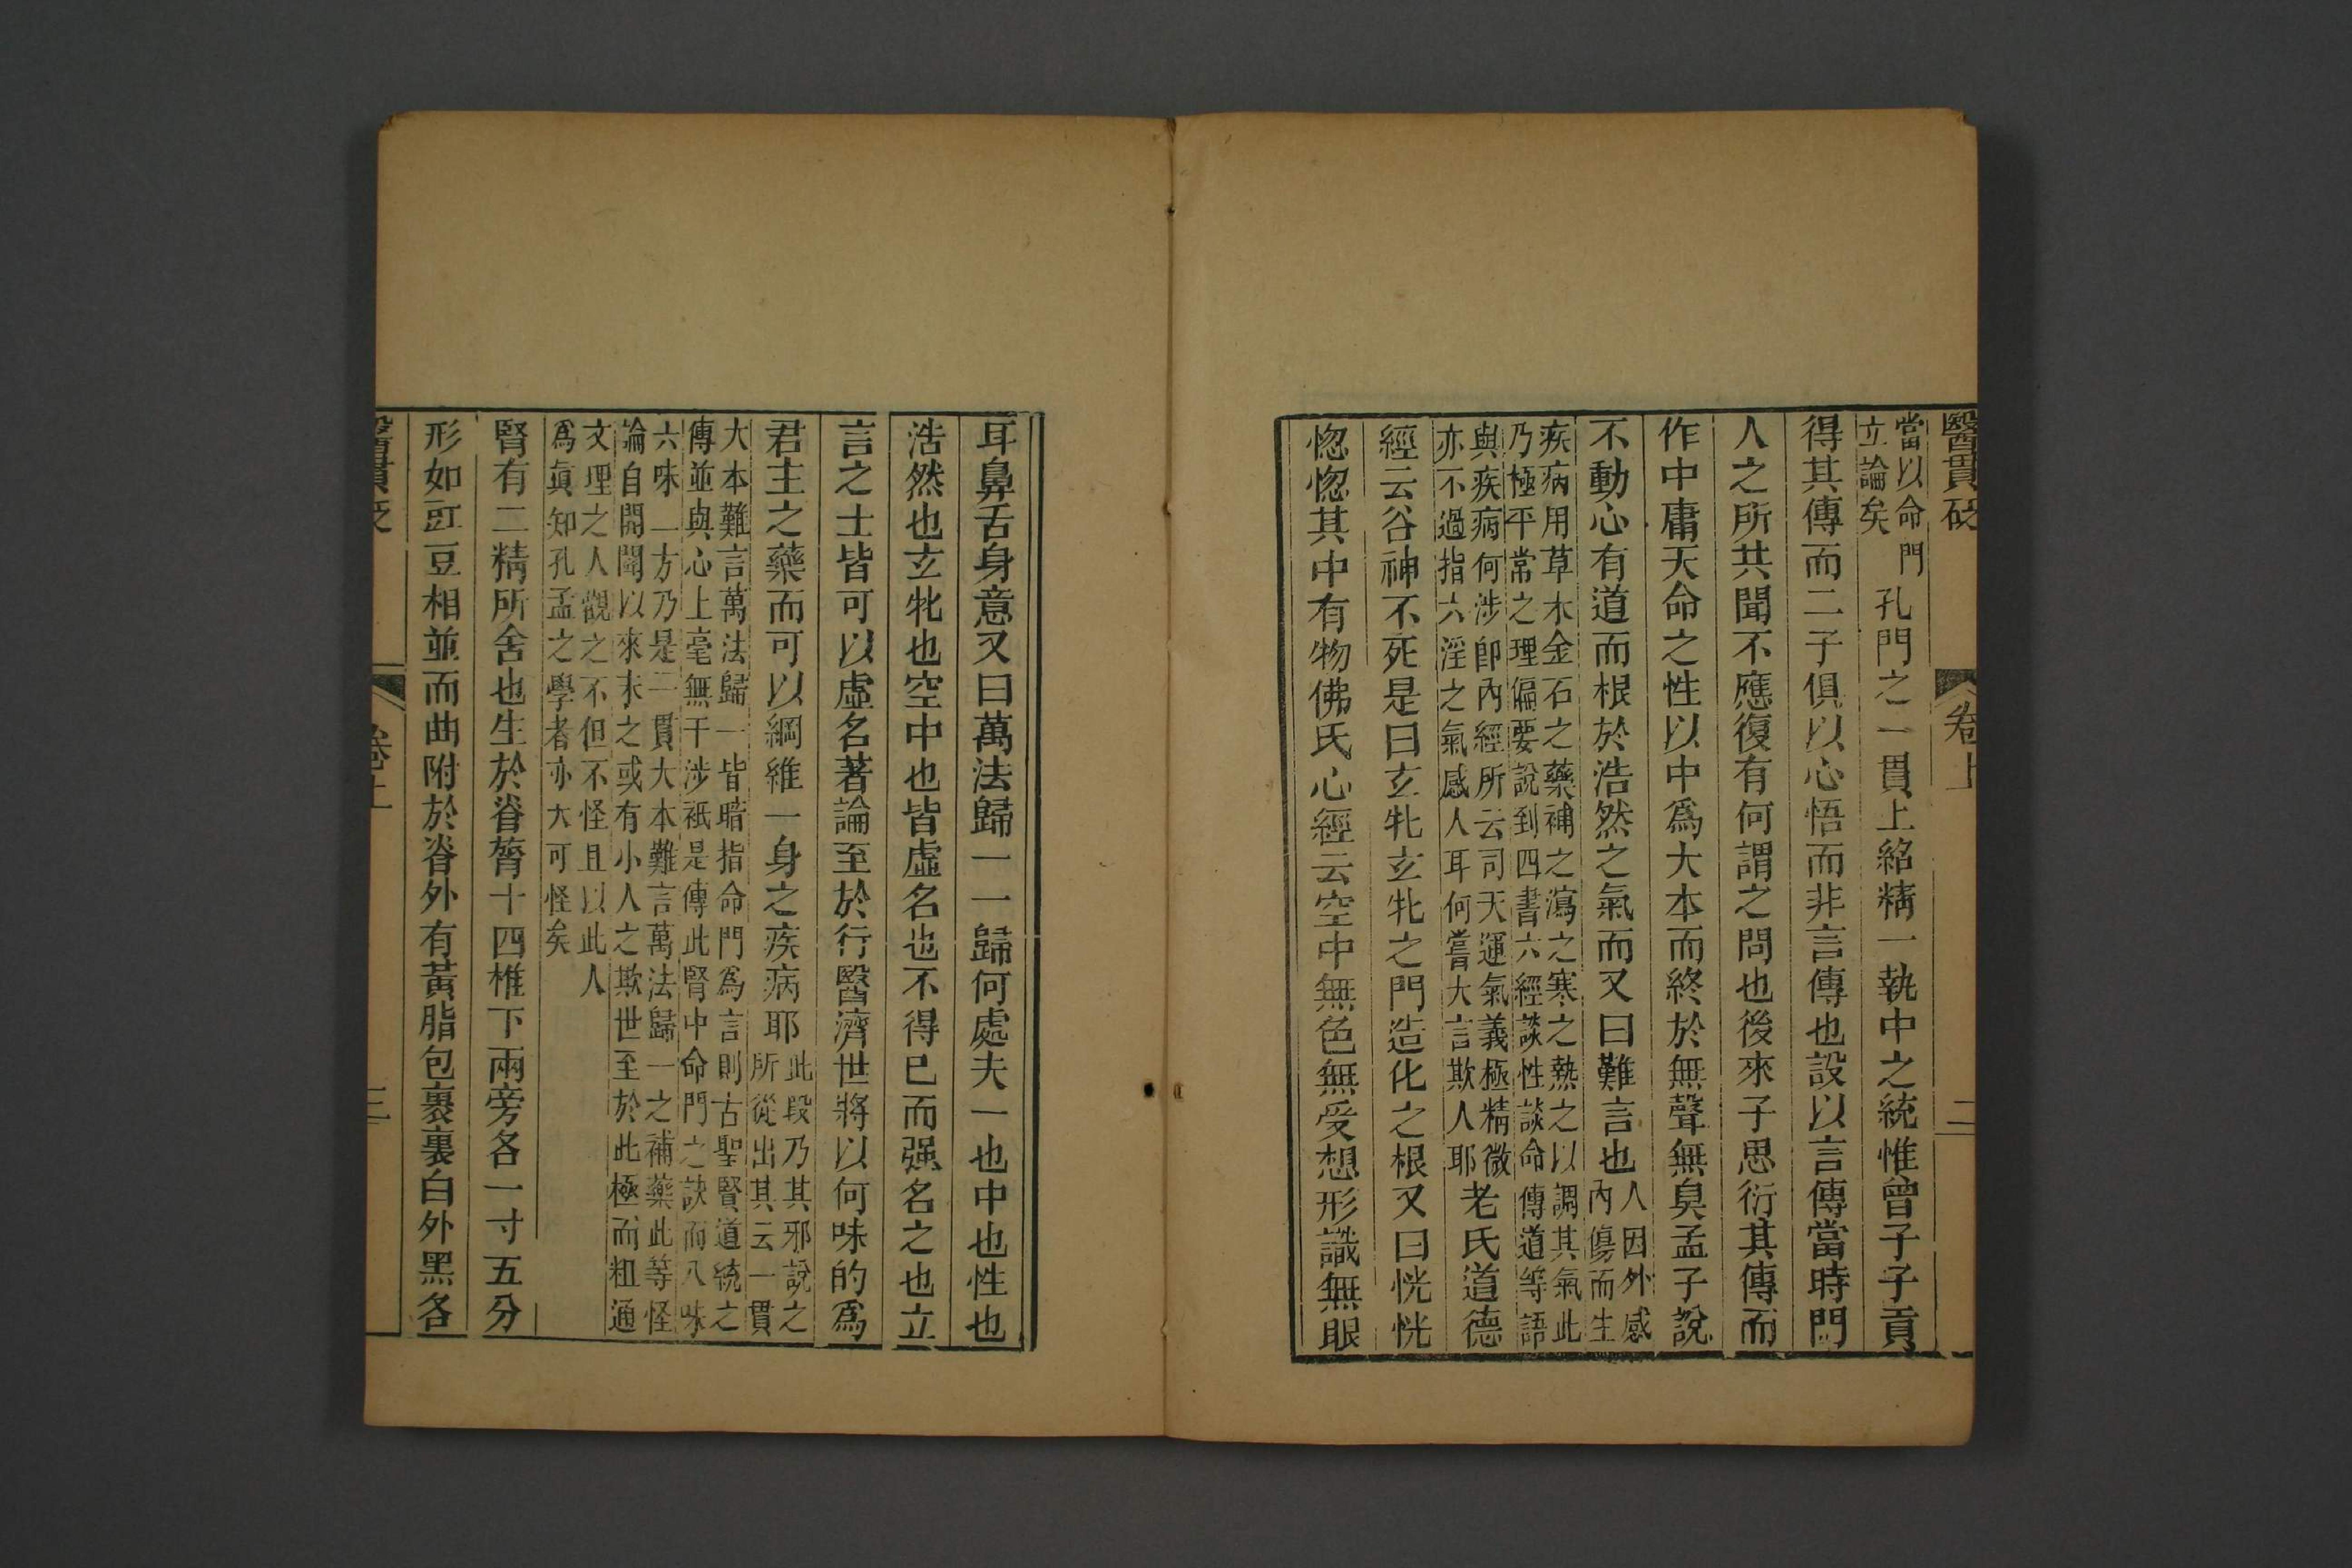 醫貫砭
卷上
二
當以命門
立論矣
孔門之一貫上紹精一執中之統惟曾子子貢
得其傳而二子俱以心悟而非言傳也設以言傳當時門
人之所共聞不應復有何謂之問也後來子思衍其傳而
作中庸天命之性以中爲大本而終於無聲無臭孟子說
不動心有道而根於浩然之氣而又曰難言也
人因外感
內傷而生
疾病用草木金石之藥補之瀉之寒之熱之以調其氣此
乃極平常之理偏要說到四書六經談性談命傳道等語
與疾病何涉卽內經所云司天運氣義極精微
亦不過指六淫之氣感人耳何嘗大言欺人耶
老氏道德
經云谷神不死是曰玄牝玄牝之門造化之根又曰恍恍
惚惚其中有物佛氏心經云空中無色無受想形識無眼
耳鼻舌身意又曰萬法歸一一歸何處夫一也中也性也
浩然也玄牝也空中也皆虛名也不得已而强名之也立
言之士皆可以虛名著論至於行醫濟世將以何味的爲
君主之藥而可以綱維一身之疾病耶
此段乃其邪說之
所從出其云一貫
大本難言萬法歸一皆暗指命門爲言則古聖賢道統之
傳並與心上毫無干涉衹是傳此腎中命門之訣而八味
六味一方乃是一貫大本難言萬法歸一之補藥此等怪
論自開闢以來未之或有小人之欺世至於此極而粗通
文理之人觀之不但不怪且以此人
爲眞知孔孟之學者亦大可怪矣
腎有二精所舍也生於脊膂十四椎下兩旁各一寸五分
形如豇豆相並而曲附於脊外有黃脂包裹裏白外黑各
醫貫砭
卷上
三